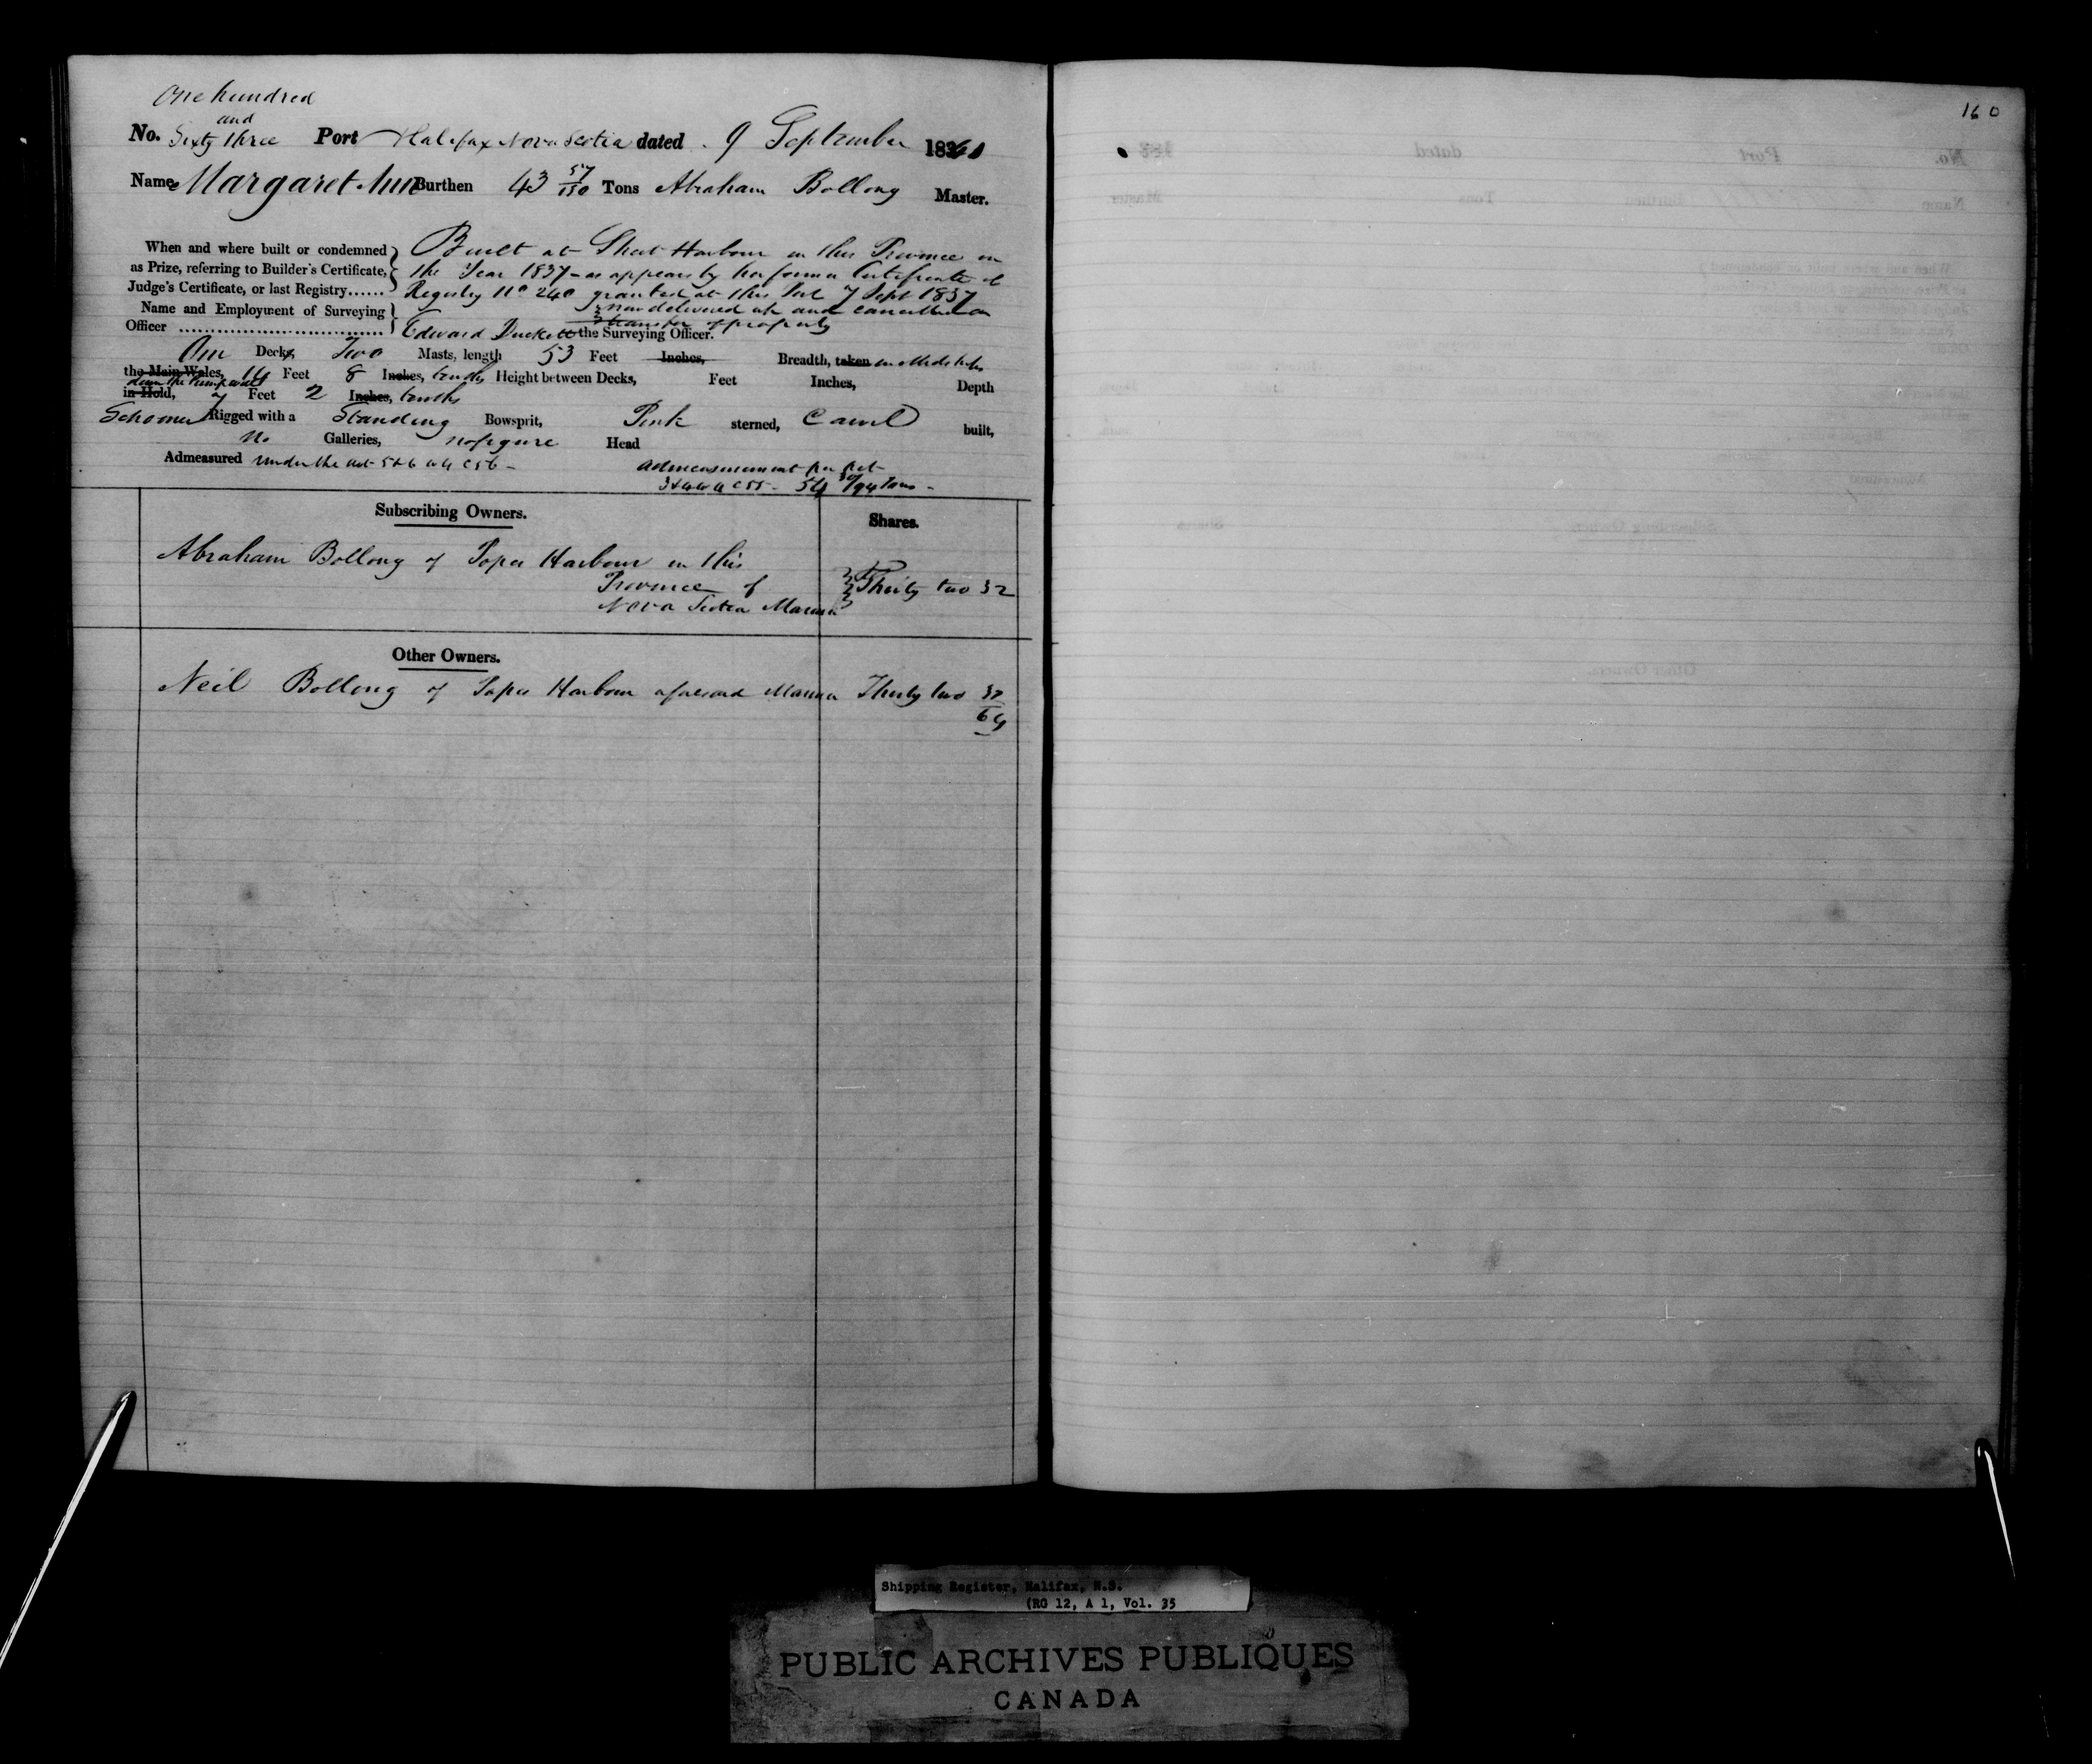 One hundred
and
No. Sixty three Port Halifax Nova Scotia dated 9 September 184
Name Margaret Ann Burthen 43 57/150 Tons Abraham Bollong Master.
When and where built or condemned as Prize, referring to Builder's Certificate, Judge's Certificate, or last Registry......
Built at Sheet Harbour in this Province in
the Year 1837 - as appears by her former Certificate of
Registry No 240 granted at this Port 7 Sept 1837
now delivered up and cancelled on
transfer of property
Name and Employment of Surveying Officer
Edward Duckett the Surveying Officer.
One Decks, Two Masts, length 53 Feet Inches, Breadth, taken in Midships
the Main Wales, 14 Feet 8 Inches, tenths Height between Decks, Feet Inches, Depth
down the Pump well
in Hold, 7 Feet 2 Inches, tenths
Schooner Rigged with a Standing Bowsprit, Pink sterned, Carvel built,
no Galleries, no figure Head
Admeasured under the act 5 & 6 W 4 C 56 -
admeasurement per act
3 & 4 W 4 C 55 - 54 30/94 Tons -
Subscribing Owners.
Shares.
Abraham Bollong of Popes Harbour in this
Province of
Nova Scotia Mariner
Thirty two 32
Other Owners.
Neil Bollong of Popes Harbour aforesaid Mariner Thirty two 32
64
160
Shipping Register, Halifax, N.S.
(RG 12, A 1, Vol. 35
PUBLIC ARCHIVES PUBLIQUES
CANADA